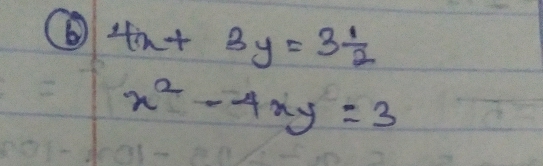 (b) 4x + 3y = 3 1/2
x² - 4xy = 3